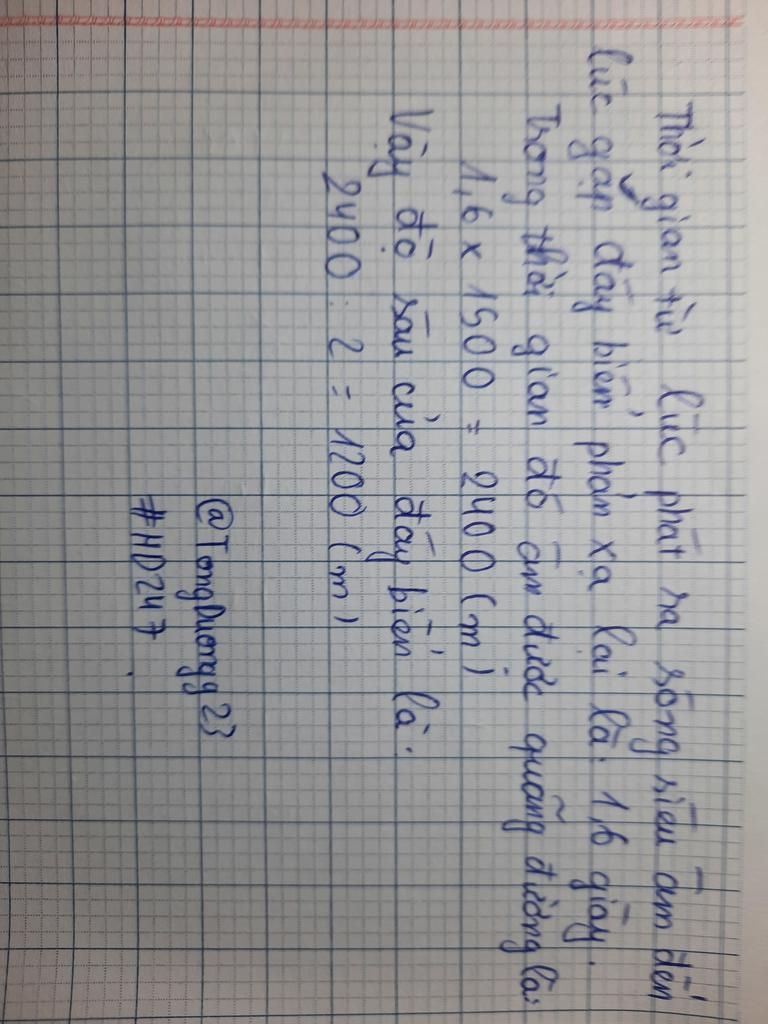 Thời gian từ lúc phát ra sóng siêu âm đến
lúc gặp đáy biển phản xạ lại là: 1,6 giây.
Trong thời gian đó âm được quãng đường là:
1,6 x 1500 = 2400 (m)
Vậy độ sâu của đáy biển là:
2400 : 2 = 1200 (m)
@TongDuongg23
#HD247